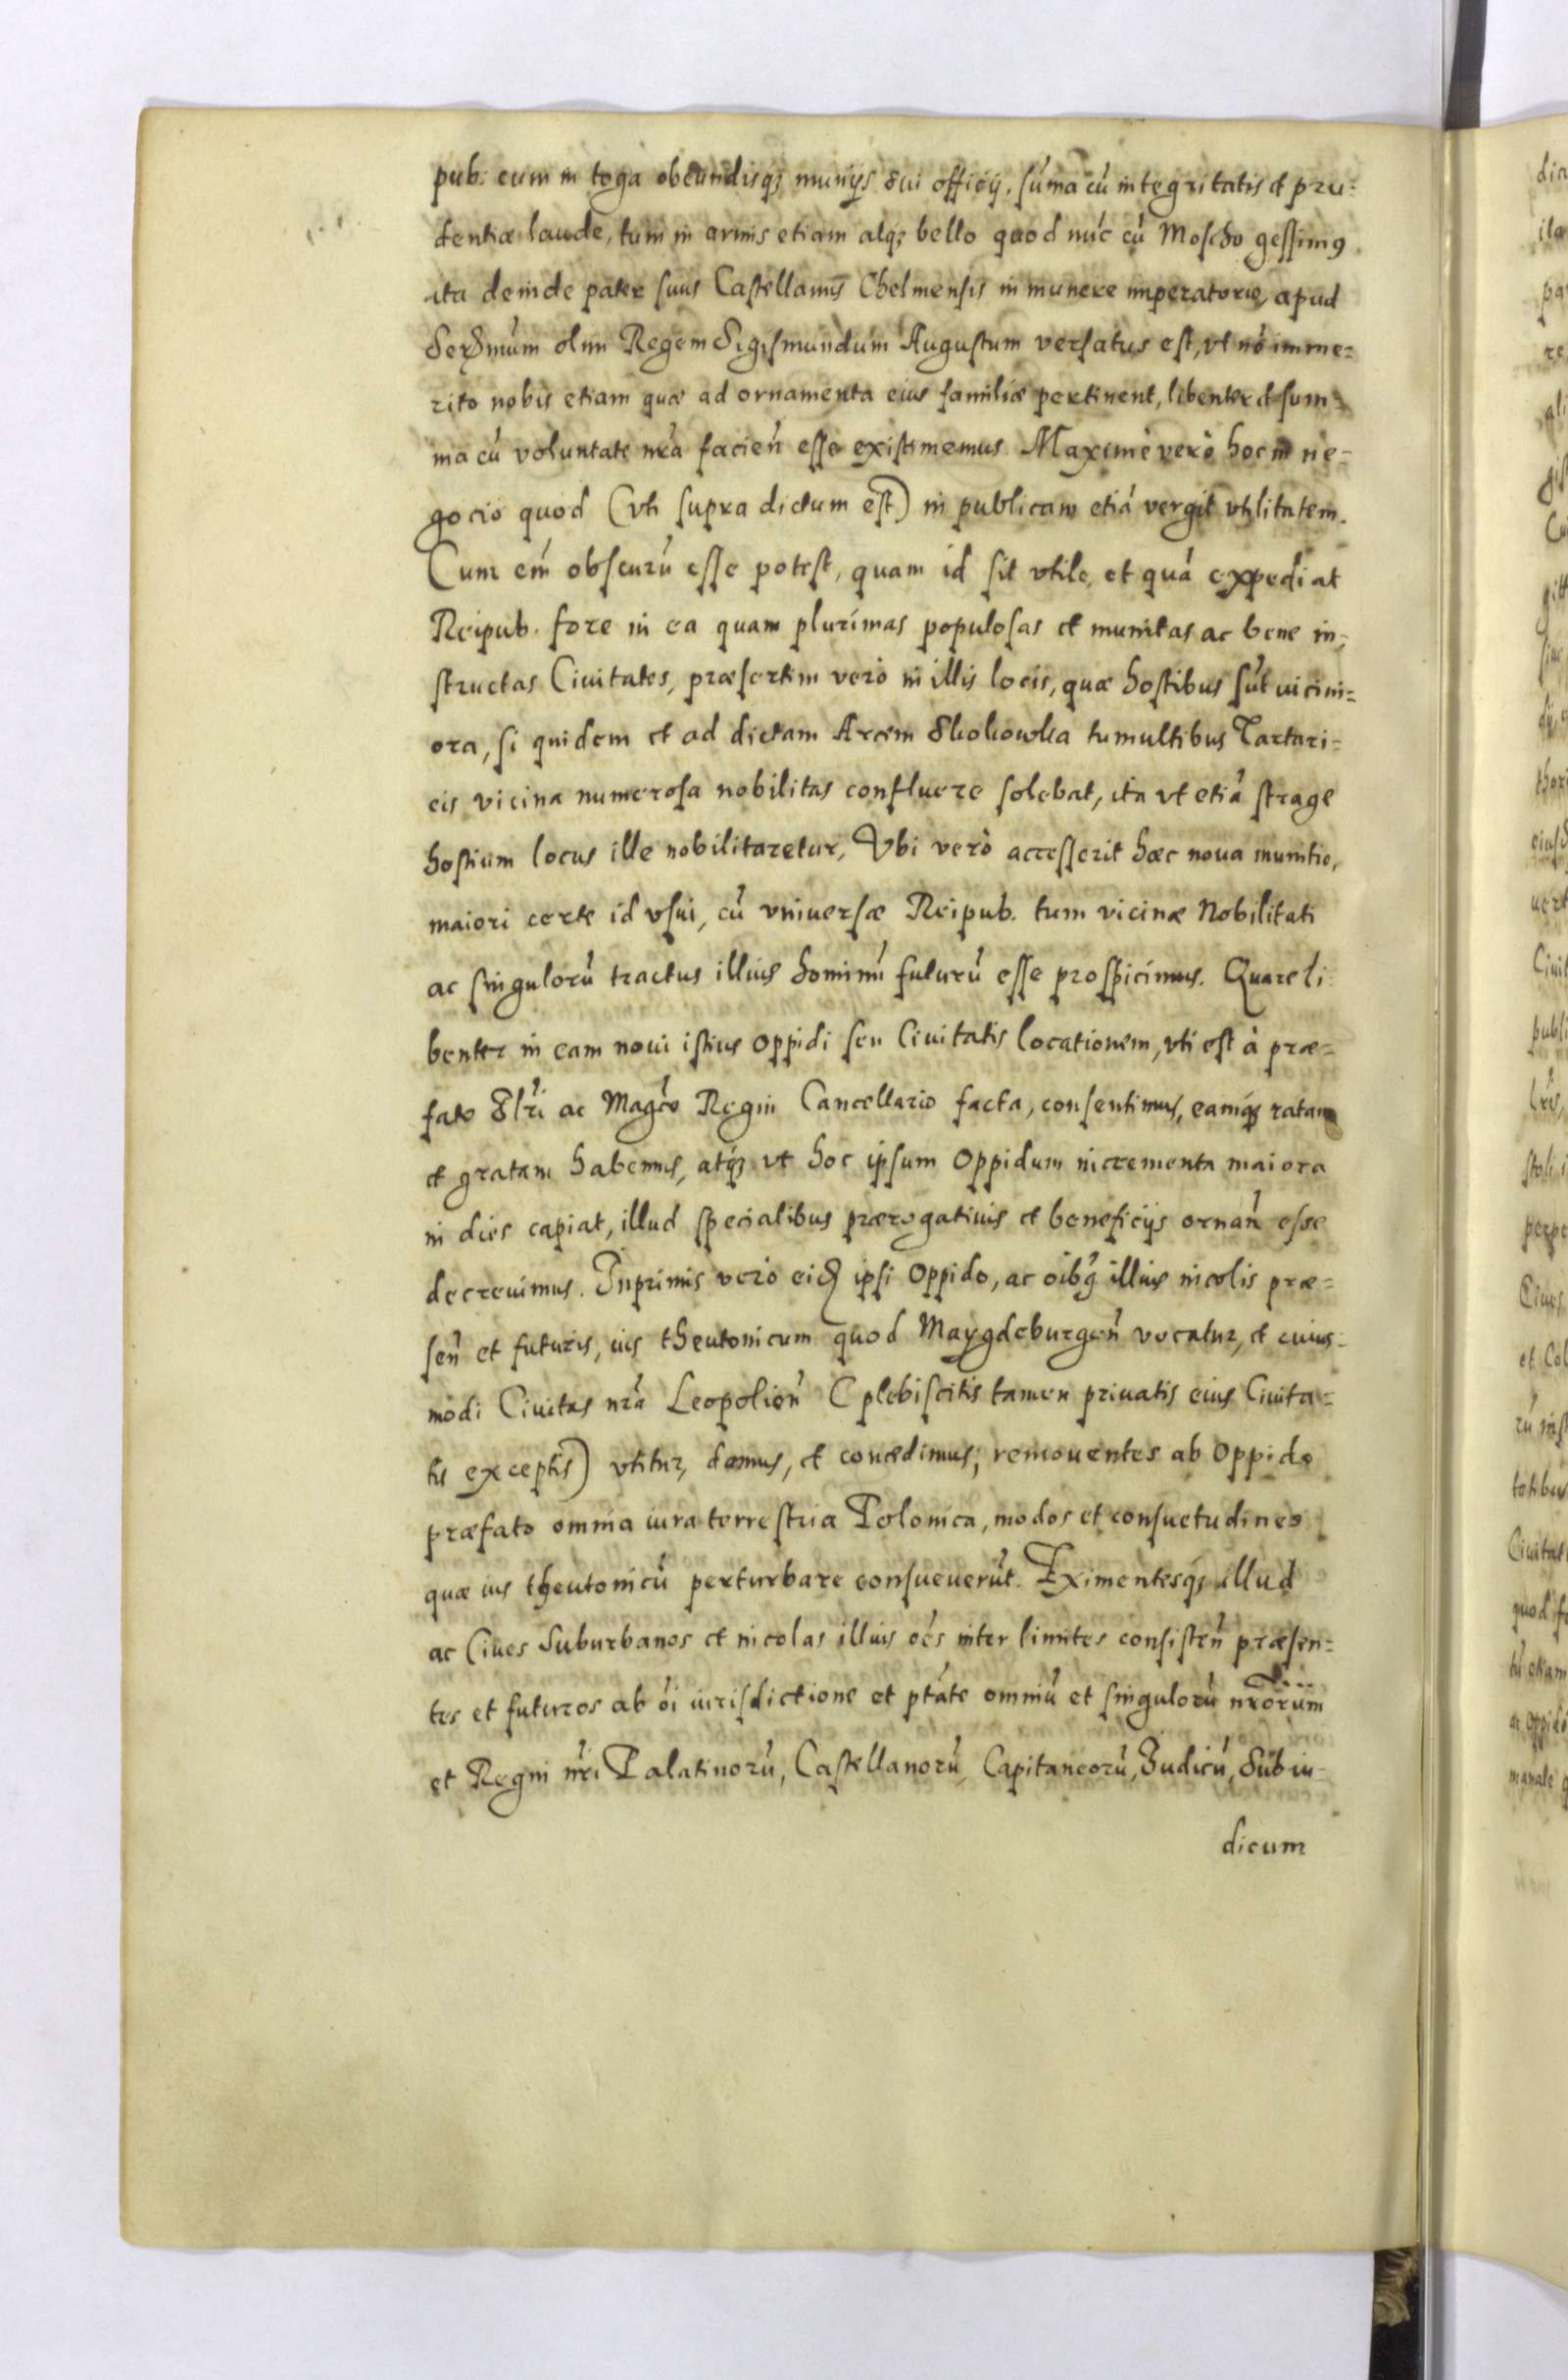 pub: cum in toga obeundisq; munijs sui officij, suma cu integritatis et pru=
dentiæ laude, tum in armis etiam atq; bello quod nuc cu Moscho gessimus
ita deinde pater suus Castellanus Chelmensis in munere imperatorio, apud
olim Regem Sigismundum Augustum versatus est, vt no imme=
rito nobis etiam quæ ad ornamenta eius familiæ pertinent, libenter et sum=
ma cu voluntate nra facien esse existimemus. Maximè verò hoc in ne=
gocio quod (vti supra dictum est) in publicam etia vergit vtilitatem.
Cum em obscuru esse potest, quam id sit vtile, et qua expediat
Reipub. fore in ea quam plurimas populosas et munitas ac bene in=
structas Ciuitates, præsertim verò in illis locis, quæ hostibus sut uicini=
ora, si quidem et ad dictam Arcem Skokowka tumultibus Tartari=
cis vicina numerosa nobilitas confluere solebat, ita vt etia strage
hostium locus ille nobilitaretur, Vbi verò accesserit hæc noua munitio,
maiori certe id vsui, cu vniuersæ Reipub. tum vicinæ Nobilitati
ac singuloru tractus illius hominu futuru esse prospicimus. Quare li=
benter in eam noui istius oppidi seu Ciuitatis locationem, vti est à præ=
fato Illri ac Magco Regni Cancellario facta, consentimus, eamq; ratam
et gratam habemus, atq; vt hoc ipsum Oppidum incrementa maiora
in dies capiat, illud specialibus prærogatiuis et beneficijs ornan esse
decreuimus. Inprimis verò eid ipsi Oppido, ac oibus illius incolis præ=
sen et futuris, ius theutonicum quod Maygdeburgen vocatur, et cuius=
modi Ciuitas nra Leopolien (plebiscitis tamen priuatis eius Ciuita=
tis exceptis) vtitur, damus, et concedimus, remouentes ab Oppido
præfato omnia iura terrestria Polonica, modos et consuetudines
quæ ius theutonicu perturbare consueuerut. Eximentesq; illud
ac Ciues Suburbanos et incolas illius oes inter limites consisten præsen=
tes et futuros ab oi iurisdictione et ptate omniu et singuloru nrorum
et Regni nri Palatinoru, Castellanoru, Capitaneoru, Iudicu, Subiu=
dicum